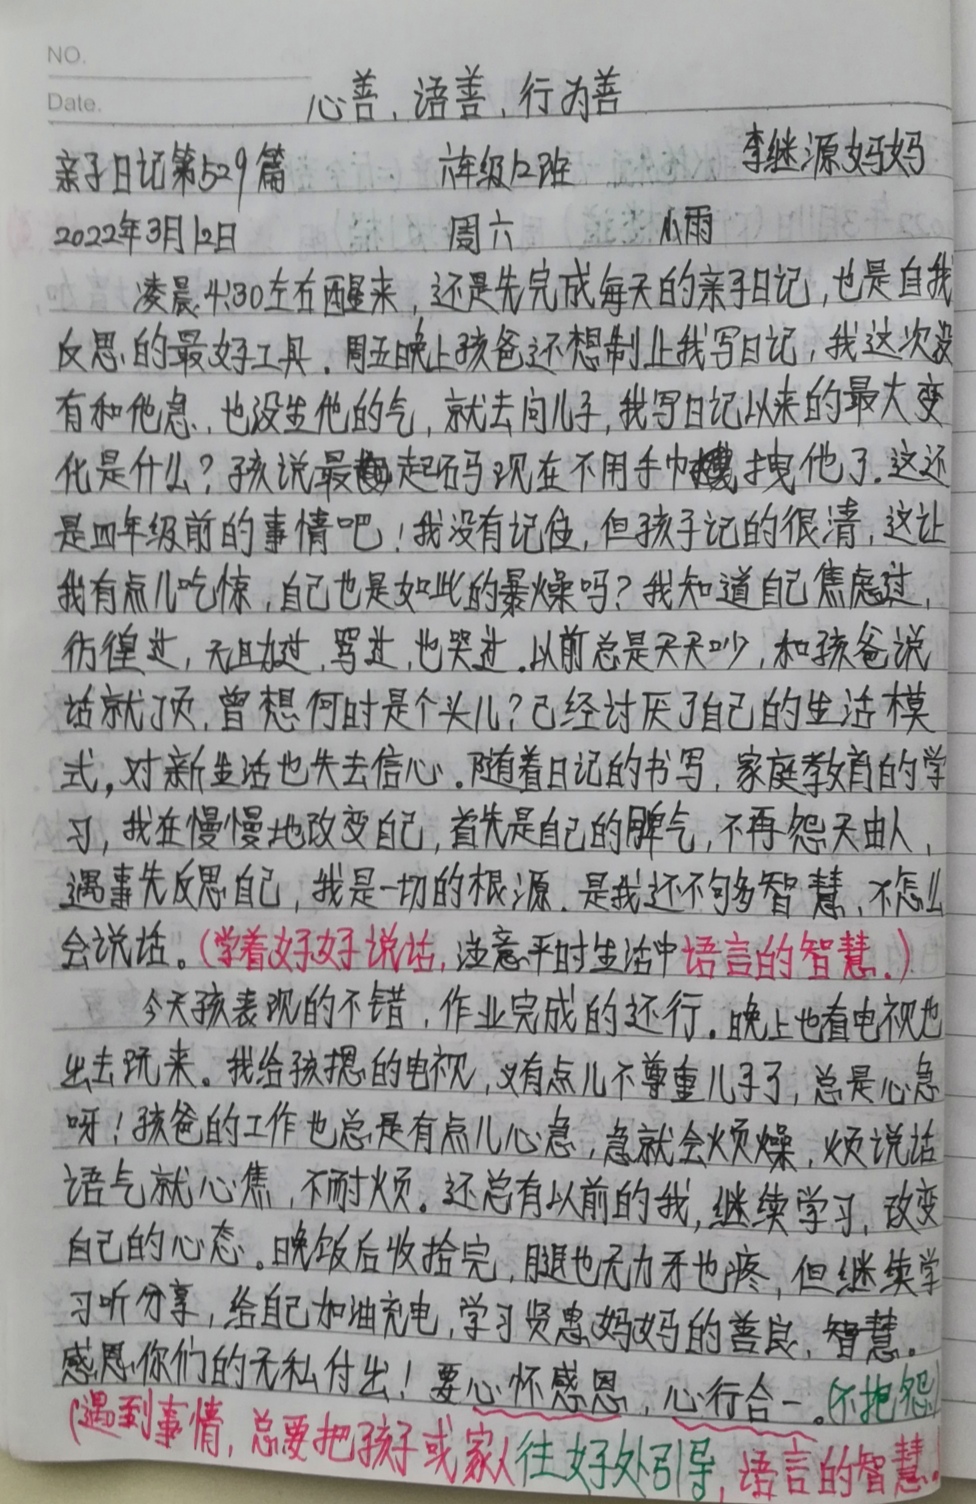 NO.
Date.
心善，语善，行为善
亲子日记第529篇 六年级12班 李继源妈妈
2022年3月12日 周六 小雨
凌晨4:30左右醒来，还是先完成每天的亲子日记，也是自我
反思的最好工具。周五晚上孩爸还想制止我写日记，我这次没
有和他急，也没生他的气，就去问儿子，我写日记以来的最大变
化是什么？孩说最起码现在不用手巾拽他了。这还
是四年级前的事情吧！我没有记住，但孩子记的很清，这让
我有点儿吃惊，自己也是如此的暴燥吗？我知道自己焦虑过，
彷徨过，无助过，骂过，也哭过。以前总是天天吵，和孩爸说
话就顶，曾想何时是个头儿？已经讨厌了自己的生活模
式，对新生活也失去信心。随着日记的书写，家庭教育的学
习，我在慢慢地改变自己，首先是自己的脾气，不再怨天由人，
遇事先反思自己，我是一切的根源。是我还不够多智慧，不怎么
会说话。（学着好好说话，注意平时生活中语言的智慧。）
今天孩表现的不错，作业完成的还行。晚上也看电视也
出去玩来。我给孩摁的电视，又有点儿不尊重儿子了，总是心急
呀！孩爸的工作也总是有点儿心急，急就会烦燥，烦说话
语气就心焦，不耐烦。还总有以前的我，继续学习，改变
自己的心态。晚饭后收拾完，腿也无力牙也疼，但继续学
习听分享，给自己加油充电，学习贤惠妈妈的善良，智慧。
感恩你们的无私付出！要心怀感恩，心行合一。（不抱怨）
（遇到事情，总要把孩子或家人往好处引导，语言的智慧。